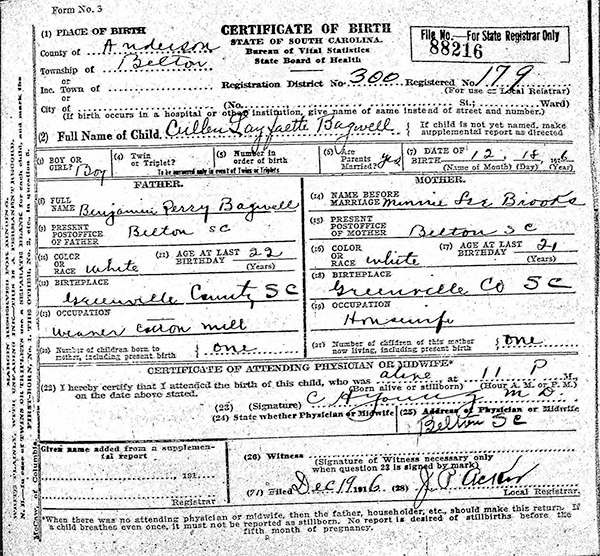 Form No. 3
(1) PLACE OF BIRTH
CERTIFICATE OF BIRTH
File No.—For State Registrar Only
88216
County of Anderson
STATE OF SOUTH CAROLINA.
Bureau of Vital Statistics
State Board of Health
Township of Belton
or
Inc. Town of
Registration District No. 300 Registered No. 179
(For use of Local Reistrar)
or
City of (No. St.; Ward)
(If birth occurs in a hospital or other institution, give name of same instead of street and number.)
(2) Full Name of Child. Cullen Bagwell
If child is not yet named, make supplemental report as directed
(3) BOY OR GIRL? Boy
(4) Twin or Triplet?
(5) Number in order of birth
To be answered only in event of Twins or Triplets
(6) Are Parents Married? yes
(7) DATE OF BIRTH 12, 18, 1916
(Name of Month) (Day) (Year)
FATHER.
MOTHER.
(8) FULL NAME Benjamin Perry Bagwell
(14) NAME BEFORE MARRIAGE Minnie Lee Brooks
(9) PRESENT POSTOFFICE OF FATHER Belton SC
(15) PRESENT POSTOFFICE OF MOTHER Belton SC
(10) COLOR OR RACE White
(11) AGE AT LAST BIRTHDAY 22 (Years)
(16) COLOR OR RACE White
(17) AGE AT LAST BIRTHDAY 21 (Years)
(12) BIRTHPLACE Greenville County SC
(18) BIRTHPLACE Greenville Co SC
(13) OCCUPATION weaver cotton mill
(19) OCCUPATION Housewife
(20) Number of children born to mother, including present birth { one
(21) Number of children of this mother now living, including present birth { one
CERTIFICATE OF ATTENDING PHYSICIAN OR MIDWIFE*
(22) I hereby certify that I attended the birth of this child, who was alive at 11 P M.
on the date above stated. (Born alive or stillborn) (Hour A. M. or P. M.)
(23) (Signature) C H Young M D.
(24) State whether Physician or Midwife
(25) Address of Physician or Midwife
Belton SC
Given name added from a supplemental report
191
Registrar
(26) Witness
(Signature of Witness necessary only when question 23 is signed by mark)
(27) Filed Dec 19 1916 (28) J. P. Acker
Local Registrar.
*When there was no attending physician or midwife, then the father, householder, etc., should make this return. If
a child breathes even once, it must not be reported as stillborn. No report is desired of stillbirths before the
fifth month of pregnancy.